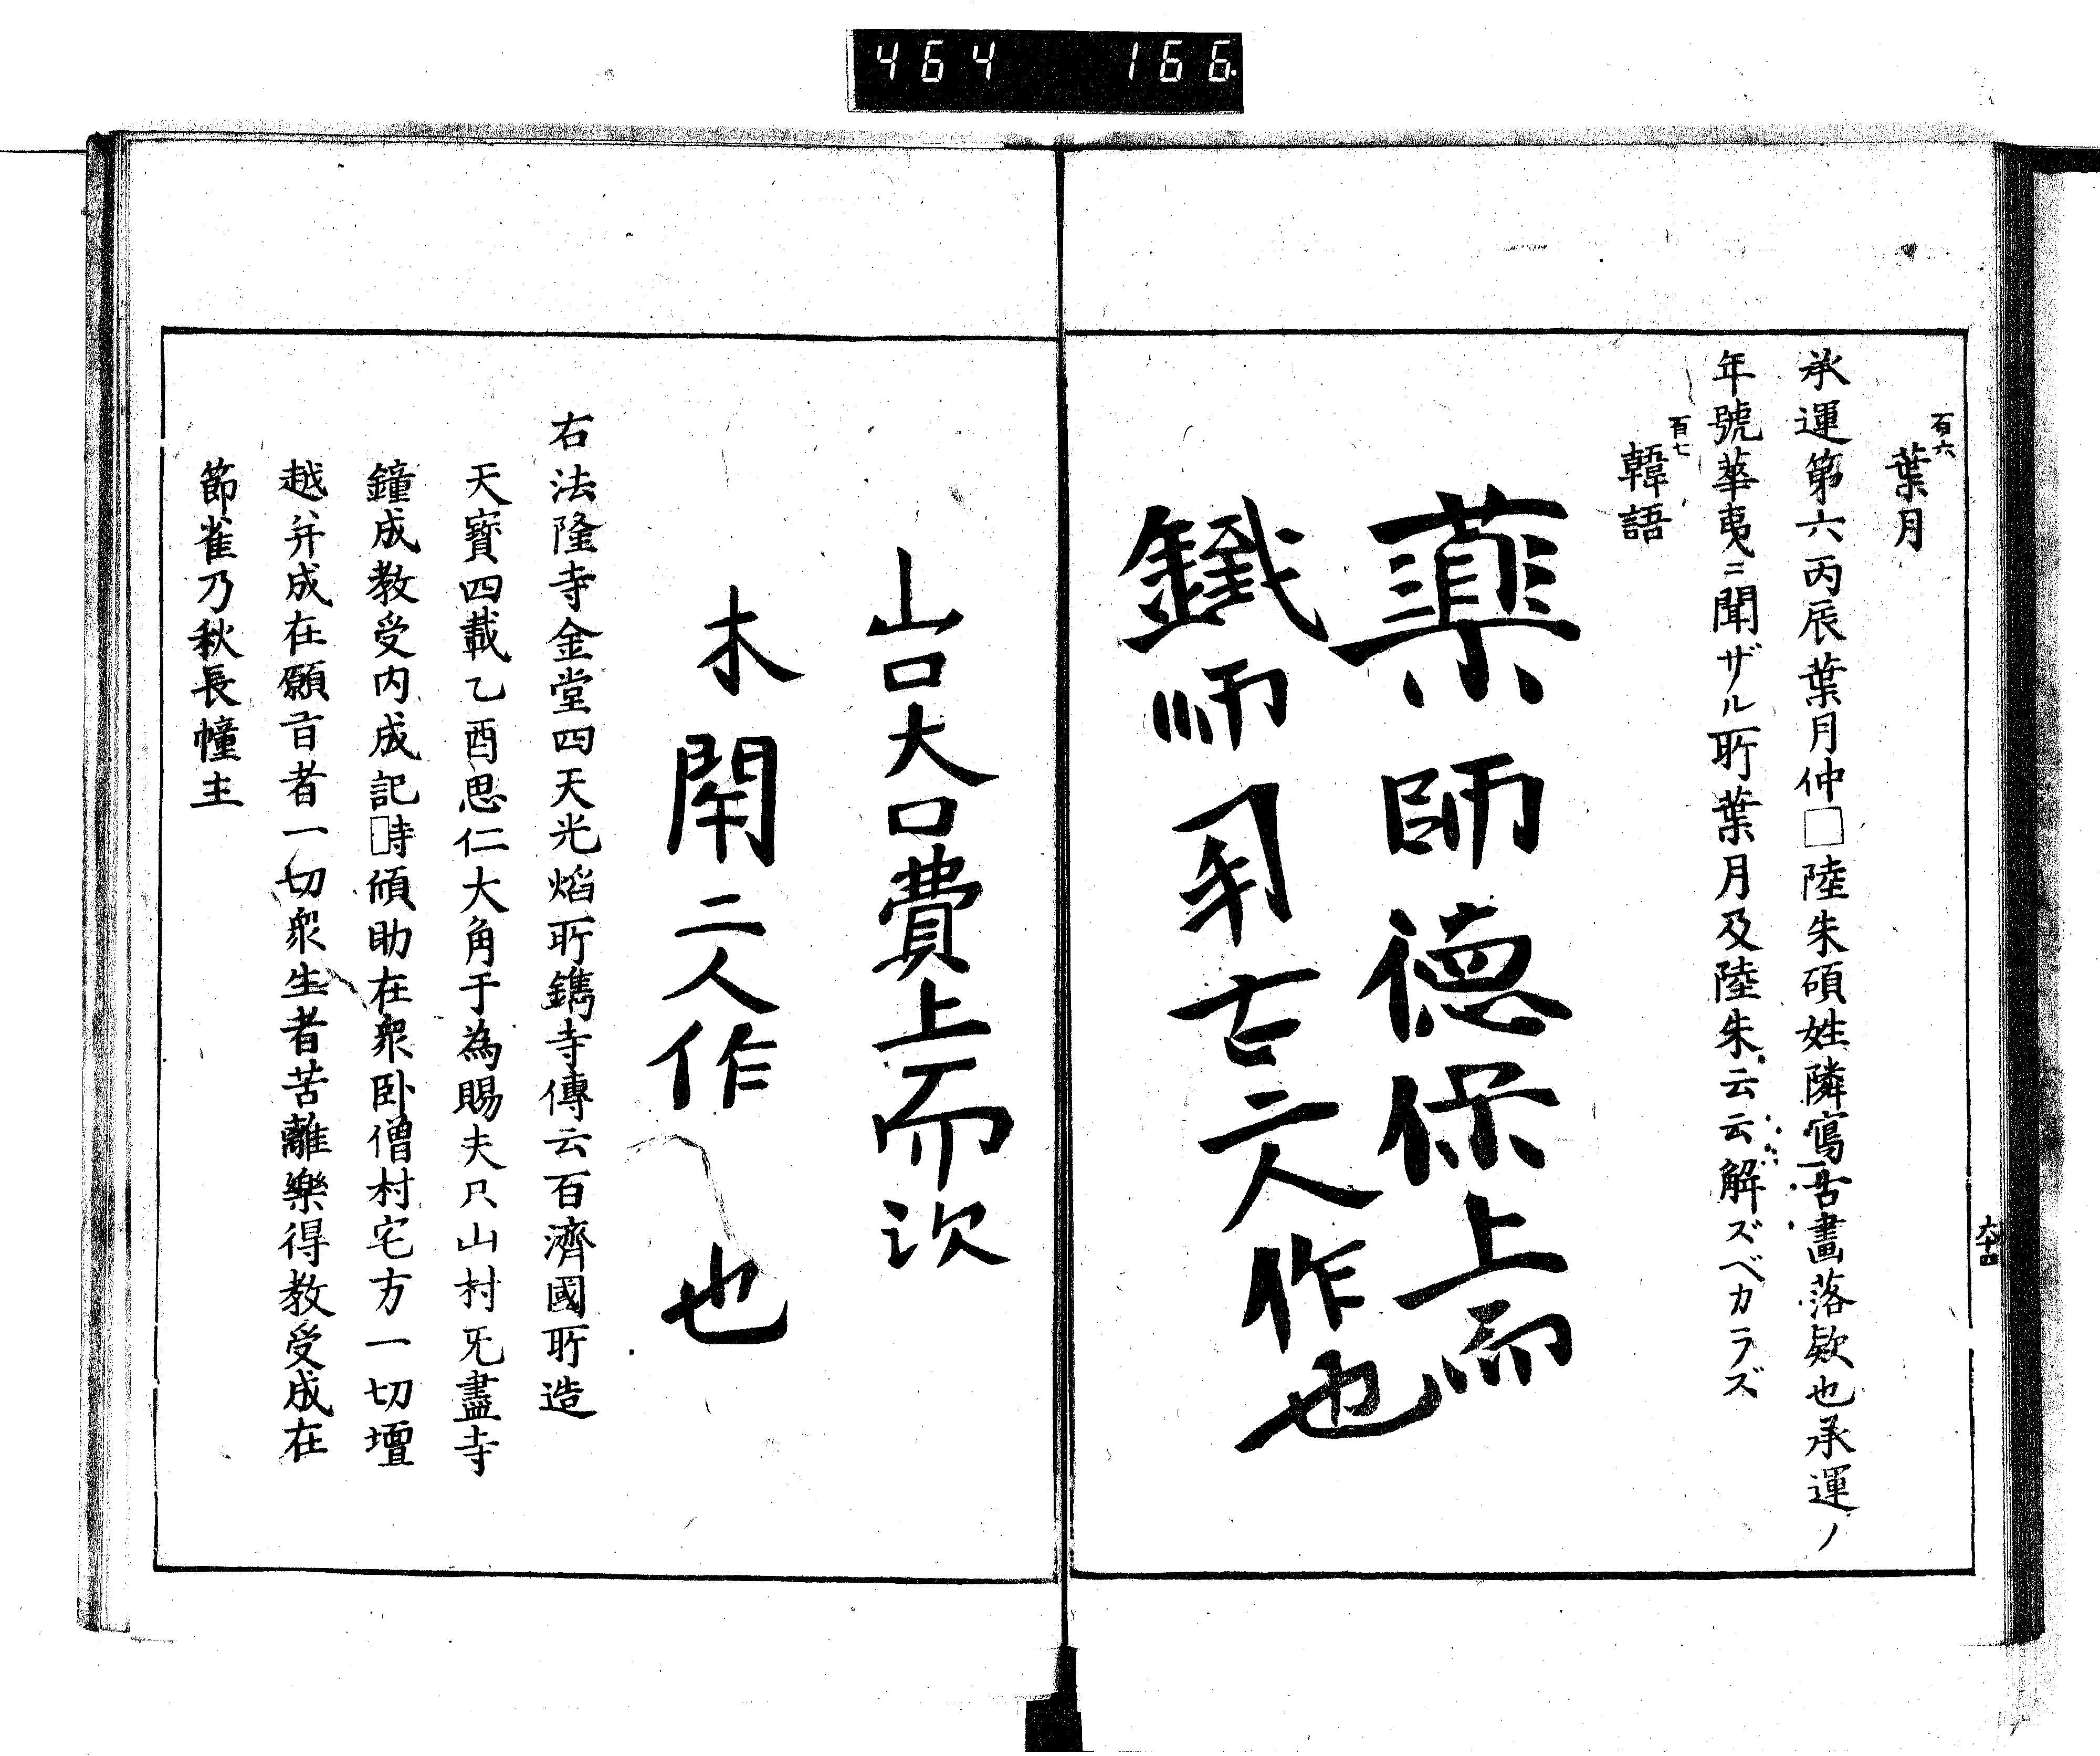 464 166
百六
葉月
承運第六丙辰葉月仲□陸朱碩姓隣寫舌畫落欵也承運ノ
年號華夷ニ聞ザル所葉月及陸朱云云解ズベカラズ
百七
韓語
藥師德保上而
鐵師𠂤古二人作也
六十四
山口大口費上而次
木閇二人作也
右法隆寺金堂四天光焰所鐫寺傳云百濟國所造
天寶四載乙酉思仁大角于為賜夫只山村旡盡寺
鐘成教受内成記□時願助在衆卧僧村宅方一切壇
越并成在願旨者一切衆生者苦離樂得教受成在
節雀乃秋長幢主